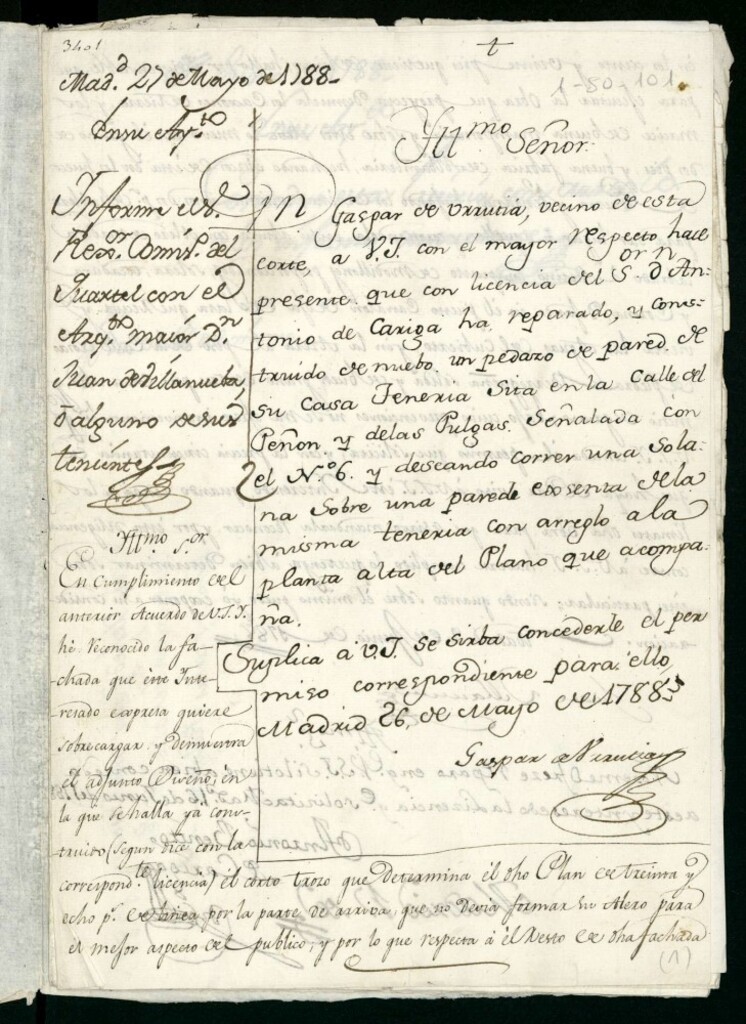 3401
†
Mad.d 27 de Mayo de 1788
1-80-101.
En su Ay.to
Yll.mo Señor.
Informe el S.r
Rex.or Comis.o del
Quartel con el
Arq.to maior D.n
Juan de Villanueba,
o alguno de sus
tenientes
D.n Gaspar de Urrutia, vecino de esta
corte, a V.I. con el mayor respecto hace
presente. que con licencia del S.or D.n An-
tonio de Cariga ha reparado, y cons-
truido de nuebo, un pedazo de pared, de
su Casa Teneria Sita en la Calle del
Peñon y de las Pulgas. Señalada con
el N.o 6. y deseando correr una Sola-
na Sobre una parede exsenta de la
misma teneria con arreglo a la
planta alta del Plano que acompa-
ña.
Suplica a V.I. se sirba concederle el per
miso correspondiente para ello,
Madrid 26, de Mayo de 1788
Gaspar de Urrutia
Yll.mo S.or
En Cumplimiento del
anterior Acuerdo de V.S.Y.
he reconocido la fa-
chada que este Inte-
resado expresa quiere
sobrecargar. y demuestra
el adjunto Diseño; en
la que se halla ya cons-
truido (segun dice con la
correspond.te licencia) el corto trozo que determina el dho Plan de treinta y
ocho p.s de linea por la parte de arriba, que no devia formar su Alero para
el mejor aspecto del publico; y por lo que respecta á el Resto de dha fachada
(1)